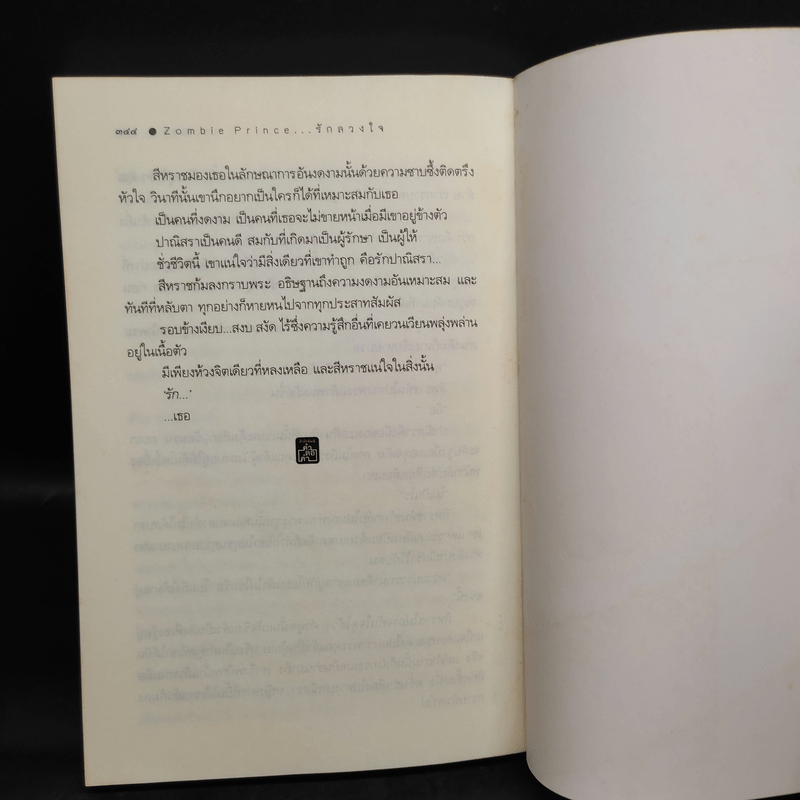 ๓๔๔ ● Zombie Prince...รักลวงใจ
สีหราชมองเธอในลักษณาการอันงดงามนั้นด้วยความซาบซึ้งติดตรึง
หัวใจ วินาทีนั้นเขานึกอยากเป็นใครก็ได้ที่เหมาะสมกับเธอ
เป็นคนที่งดงาม เป็นคนที่เธอจะไม่ขายหน้าเมื่อมีเขาอยู่ข้างตัว
ปาณิสราเป็นคนดี สมกับที่เกิดมาเป็นผู้รักษา เป็นผู้ให้
ชั่วชีวิตนี้ เขาแน่ใจว่ามีสิ่งเดียวที่เขาทำถูก คือรักปาณิสรา...
สีหราชก้มลงกราบพระ อธิษฐานถึงความงดงามอันเหมาะสม และ
ทันทีที่หลับตา ทุกอย่างก็หายหนไปจากทุกประสาทสัมผัส
รอบข้างเงียบ...สงบ สงัด ไร้ซึ่งความรู้สึกอื่นที่เคยวนเวียนพลุ่งพล่าน
อยู่ในเนื้อตัว
มีเพียงห้วงจิตเดียวที่หลงเหลือ และสีหราชแน่ใจในสิ่งนั้น
'รัก...'
...เธอ